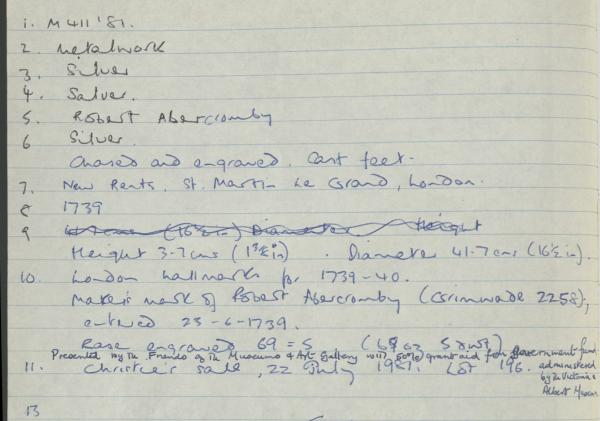 1. M 411 '81.
2. Metalwork
3. Silver
4. Salver.
5. Robert Abercromby
6 Silver.
Chased and engraved. Cast feet.
7. New Rents, St. Martin Le Grand, London.
8 1739
9 41.7 cms (16½ in) Diameter Height
Height 3.7 cms (1 in). Diameter 41.7 cms (16½ in).
10. London hallmarks for 1739-40.
Maker's mark of Robert Abercromby (Grimwade 2258),
entered 23-6-1739.
Base engraved 69 = 5 (69 oz 5 dwt)
Presented by the Friends of the Museums & Art Gallery with 50% grant aid from government fund
11. Christie's sale, 22 July 1981. Lot 196. administered
by the Victoria &
Albert Museum
13